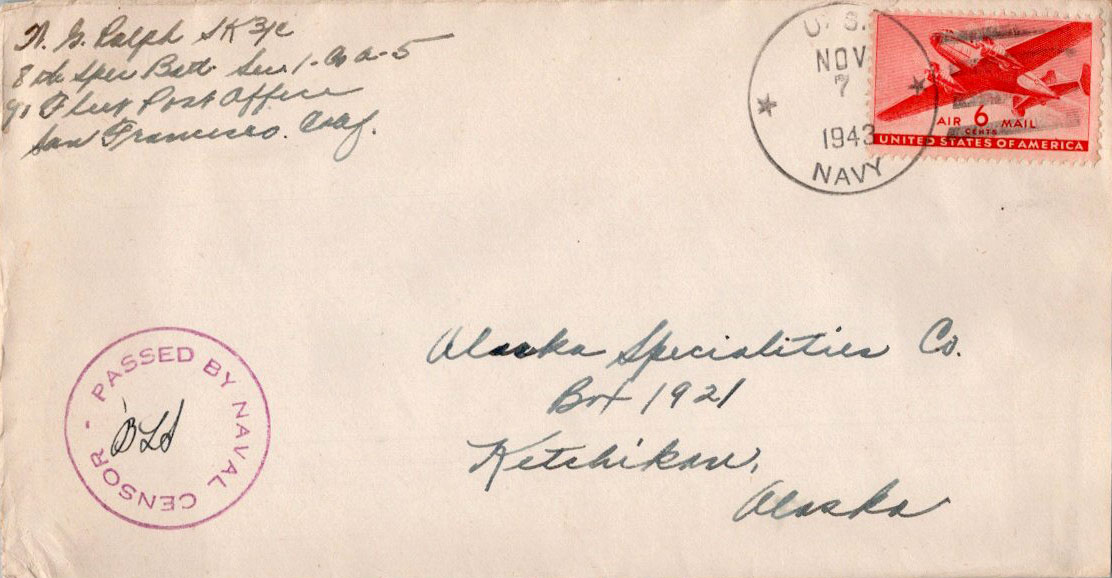 N. G. Ralph SK 3/c
8th Spec Batt. Sec. 1. Co A-5
℅ Fleet Post Office
San Francisco. Calif.
U. S.
NOV
7
1943
NAVY
AIR 6 MAIL
CENTS
UNITED STATES OF AMERICA
Alaska Specialities Co.
Box 1921
Ketchikan,
Alaska
PASSED BY NAVAL CENSOR -
BLS